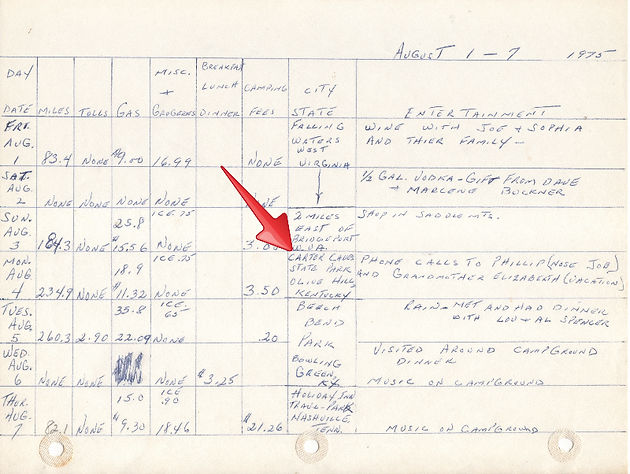 AUGUST 1 - 7 1975
DAY
DATE
MILES
TOLLS
GAS
MISC.
+
GROCERIES
BREAKFAST
LUNCH
DINNER
CAMPING
FEES
CITY
STATE
ENTERTAINMENT
FRI.
AUG.
1
83.4
NONE
$9.00
16.99
NONE
FALLING
WATERS
WEST
VIRGINIA
WINE WITH JOE + SOPHIA
AND THIER FAMILY -
SAT.
AUG.
2
NONE
NONE
NONE
NONE
1/2 GAL. VODKA - GIFT FROM DAVE
+ MARLENE BUCKNER
SUN.
AUG.
3
184.3
NONE
25.8
$15.56
ICE .75
NONE
2 MILES
EAST OF
BRIDGEPORT
W.VA.
SHOP IN SADDLE MTS.
MON.
AUG
4
234.9
NONE
18.9
$11.32
ICE .75
NONE
3.50
CARTER CAVES
STATE PARK
OLIVE HILL,
KENTUCKY
PHONE CALLS TO PHILLIP (NOSE JOB)
AND GRANDMOTHER ELIZABETH (VACATION)
TUES.
AUG.
5
260.3
2.90
35.8
22.09
ICE
65
NONE
.20
BEECH
BEND
PARK
RAIN - MET AND HAD DINNER
WITH LOU + AL SPENCER
WED.
AUG.
6
NONE
NONE
NONE
$3.25
BOWLING
GREEN,
KY
VISITED AROUND CAMPGROUND
DINNER
MUSIC ON CAMPGROUND
THUR.
AUG.
7
82.1
NONE
15.0
$9.30
ICE
.90
18.46
$21.26
HOLIDAY INN
TRAVL-PARK
NASHVILLE,
TENN.
MUSIC ON CAMPGROUND